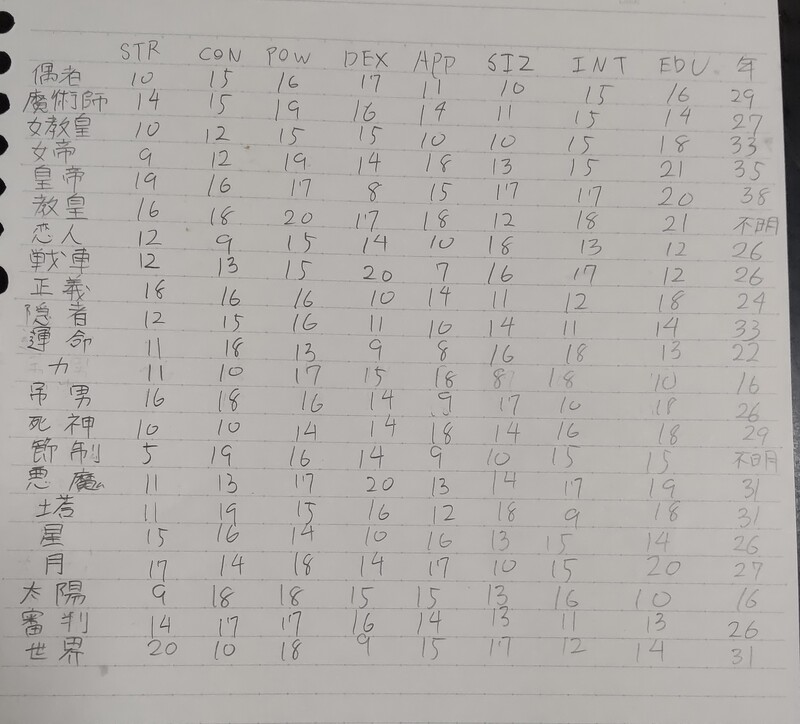 STR CON POW DEX APP SIZ INT EDU 年
偶者 10 15 16 17 11 10 15 16 29
魔術師 14 15 19 16 14 11 15 14 27
女教皇 10 12 15 15 10 10 15 18 33
女帝 9 12 19 14 18 13 15 21 35
皇帝 19 16 17 8 15 17 17 20 38
教皇 16 18 20 17 18 12 18 21 不明
恋人 12 9 15 14 10 18 13 12 26
戦車 12 13 15 20 7 16 17 12 26
正義 18 16 16 10 14 11 12 18 24
隠者 12 15 16 11 10 14 11 14 33
運命 11 18 13 9 8 16 18 13 22
力 11 10 17 15 18 8 18 10 16
吊男 16 18 16 14 9 17 10 18 26
死神 10 10 14 14 18 14 16 18 29
節制 5 19 16 14 9 10 15 15 不明
悪魔 11 13 17 20 13 14 17 19 31
塔 11 19 15 16 12 18 9 18 31
星 15 16 14 10 16 13 15 14 26
月 17 14 18 14 17 10 15 20 27
太陽 9 18 18 15 15 13 16 10 16
審判 14 17 17 16 14 13 11 13 26
世界 20 10 18 9 15 17 12 14 31